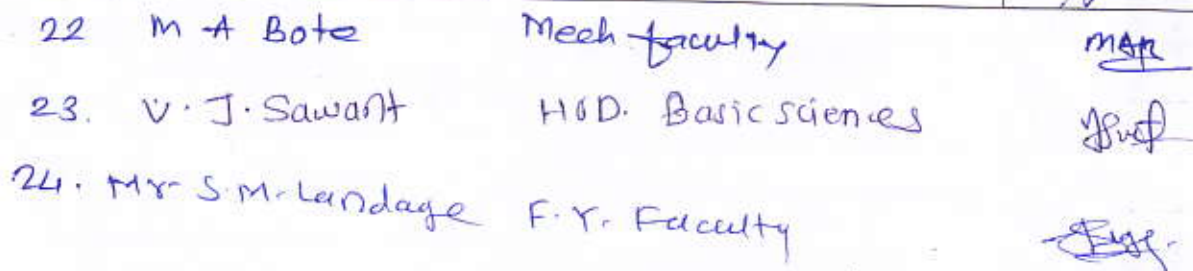 22 M A Bote Mech faculty
23. V. J. Sawant HOD. Basic sciences
24. Mr. S. M. Landage F. Y. Faculty